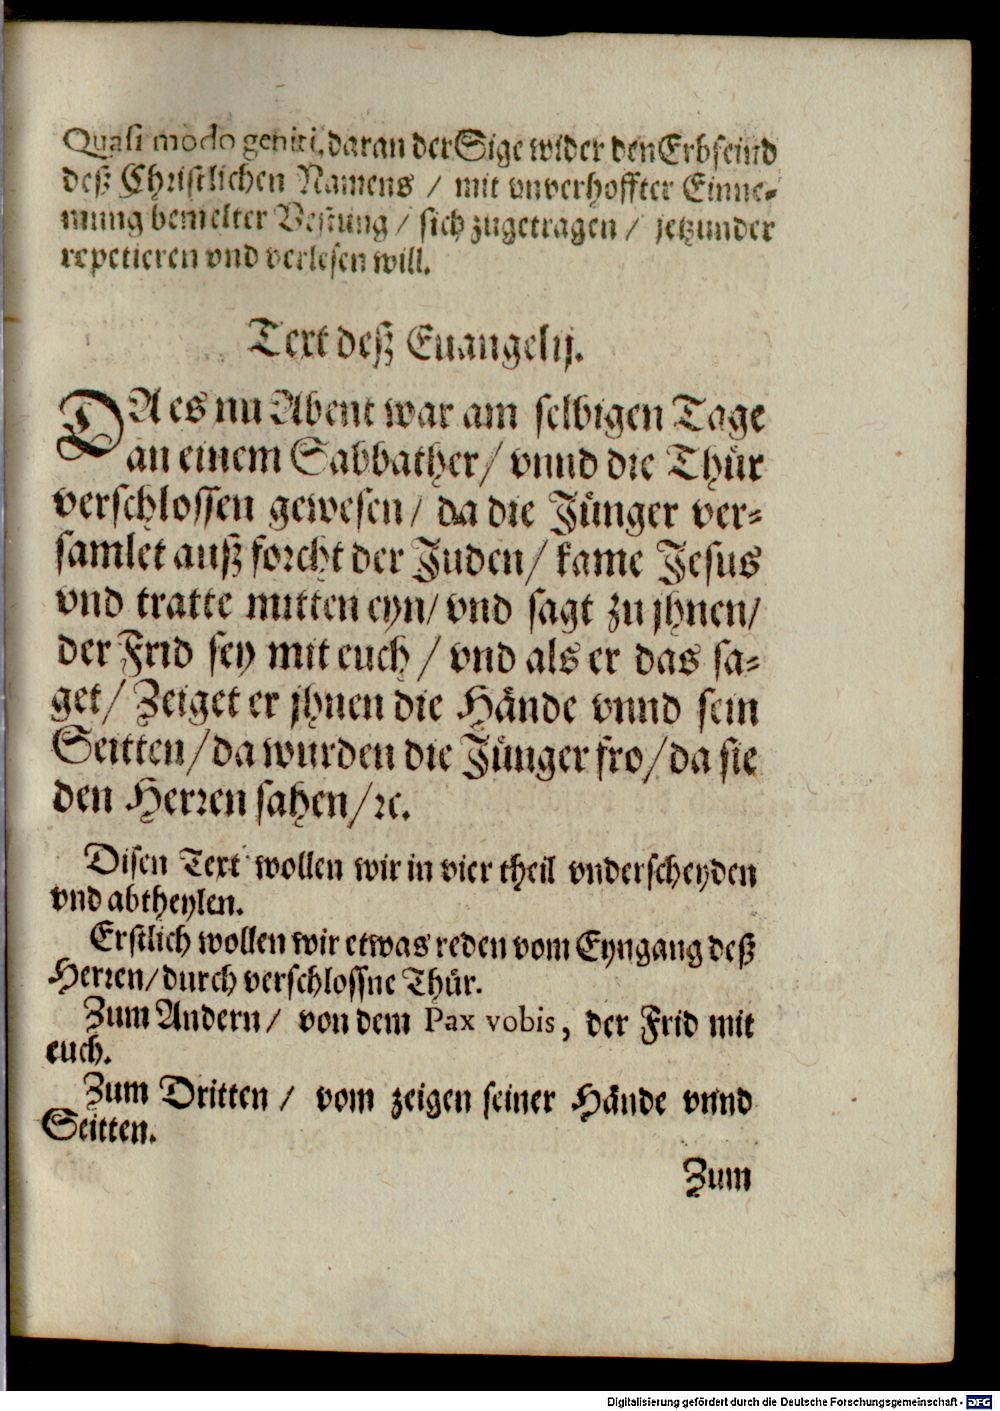 Quasi modo geniti, daran der Sige wider den Erbfeind
deß Christlichen Namens / mit vnverhoffter Einne-
mung bemelter Vestung / sich zugetragen / jetzunder
repetieren vnd verlesen will.
Text deß Euangelij.
DA es nu Abent war am selbigen Tage
an einem Sabbather / vnnd die Thür
verschlossen gewesen / da die Jünger ver-
samlet auß forcht der Juden / kame Jesus
vnd tratte mitten eyn / vnd sagt zu jhnen /
der Frid sey mit euch / vnd als er das sa-
get / Zeiget er jhnen die Hände vnnd sein
Seitten / da wurden die Jünger fro / da sie
den Herren sahen / ꝛc.
Disen Text wollen wir in vier theil vnderscheyden
vnd abtheylen.
Erstlich wollen wir etwas reden vom Eyngang deß
Herren / durch verschlossne Thür.
Zum Andern / von dem Pax vobis, der Frid mit
euch.
Zum Dritten / vom zeigen seiner Hände vnnd
Seitten.
Zum
Digitalisierung gefördert durch die Deutsche Forschungsgemeinschaft - DFG